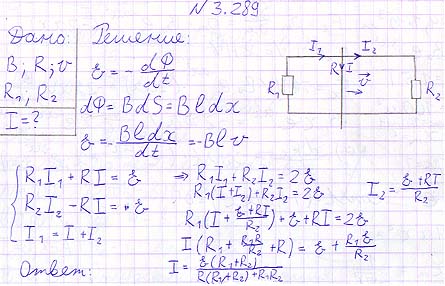 N 3.289
Дано: Решение:
B; R; v
R₁, R₂
I = ?
ℰ = - dΦ/dt
dΦ = BdS = Bldx
ℰ = - Bldx/dt = -Blv
I₁ I₂
R I
v
R₁ R₂
R₁I₁ + RI = ℰ
R₂I₂ - RI = -ℰ
I₁ = I + I₂
⇒ R₁I₁ + R₂I₂ = 2ℰ
R₁(I + I₂) + R₂I₂ = 2ℰ
I₂ = (ℰ + RI)/R₂
R₁(I + (ℰ + RI)/R₂) + ℰ + RI = 2ℰ
I(R₁ + R₁R/R₂ + R) = ℰ + R₁ℰ/R₂
Ответ: I = ℰ(R₁ + R₂)/(R(R₁ + R₂) + R₁R₂)